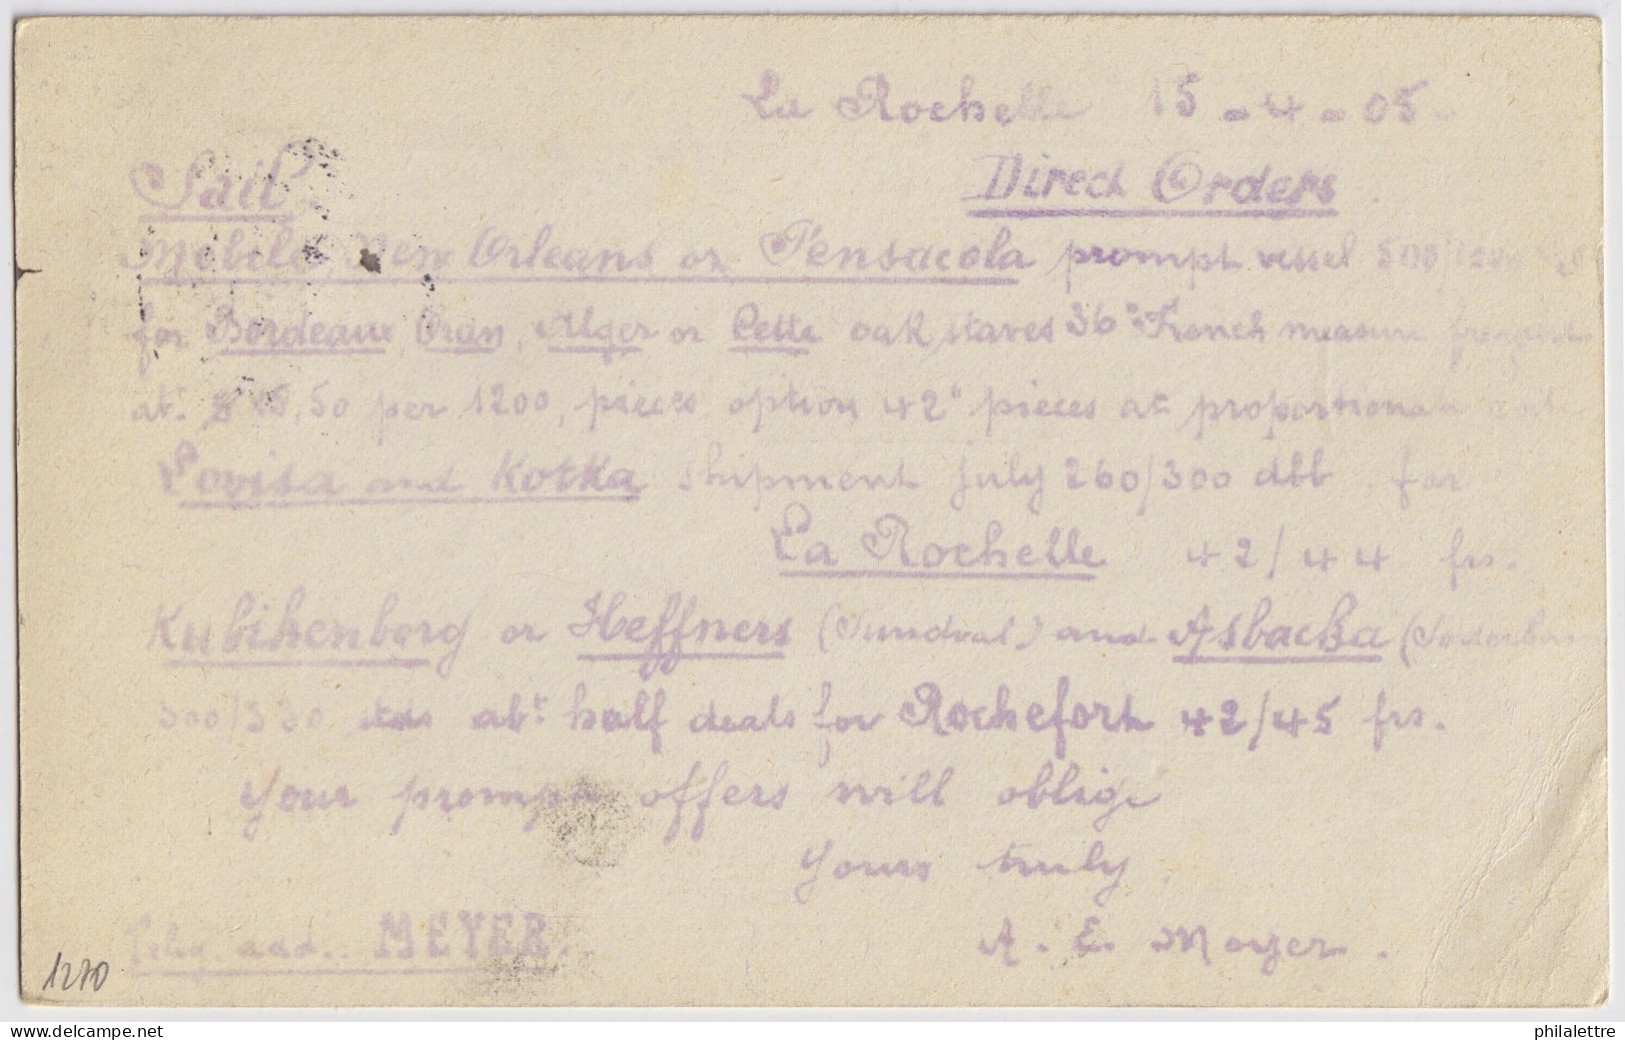 La Rochelle 15-4-05
Sail Direct Orders.
Mobile, New Orleans or Pensacola prompt vessel
for Bordeaux, Oran, Alger or Cette oak staves 36" French measure freight
at 50 per 1200, pieces option 42" pieces at proportionate
Lovisa and Kotka shipment july 260/300 dbb for
La Rochelle 42/44 frs.
Kubikenborg or Heffners (Sundval.) and Asbacka
300/330 stds abt half deals for Rochefort 42/45 frs.
Your prompt offers will oblige
Yours truly,
Teleg. add.: MEYER. A. E. Meyer.
1270
www.delcampe.net philalettre